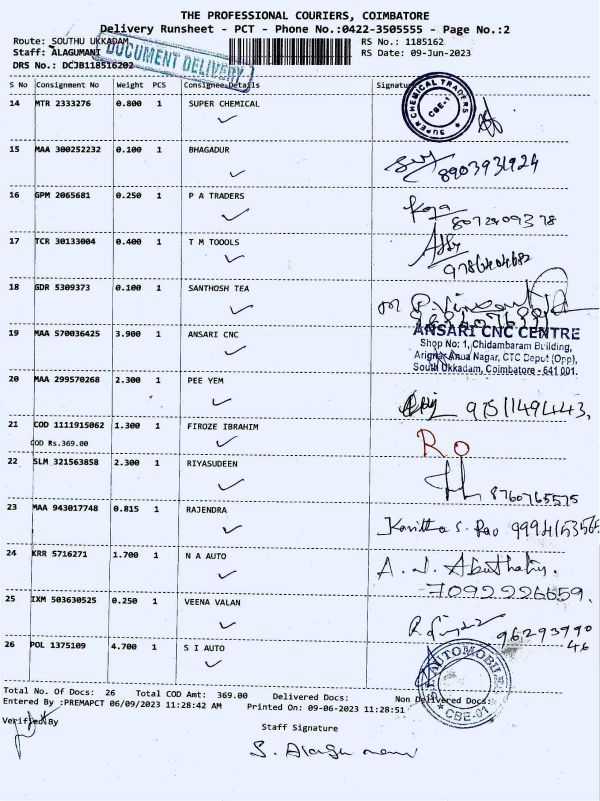 THE PROFESSIONAL COURIERS, COIMBATORE
Delivery Runsheet - PCT - Phone No.:0422-3505555 - Page No.:2
Route: SOUTHU UKKADAM
RS No.: 1185162
Staff: ALAGUMANI
RS Date: 09-Jun-2023
DOCUMENT DELIVERY
DRS No.: DCJB118516202
S No Consignment No Weight PCS Consignee Details Signature
14 MTR 2333276 0.800 1 SUPER CHEMICAL
SUPER CHEMICAL TRADERS
CBE-1
15 MAA 300252232 0.100 1 BHAGADUR
8903931924
16 GPM 2065681 0.250 1 P A TRADERS
17 TCR 30133004 0.400 1 T M TOOOLS
18 GDR 5309373 0.100 1 SANTHOSH TEA
19 MAA 570036425 3.900 1 ANSARI CNC
ANSARI CNC CENTRE
Shop No: 1, Chidambaram Building,
Arignar Anna Nagar, CTC Depot (Opp),
South Ukkadam, Coimbatore - 641 001.
20 MAA 299570268 2.300 1 PEE YEM
9751149443.
21 COD 1111915062 1.300 1 FIROZE IBRAHIM
COD Rs.369.00
22 SLM 321563858 2.300 1 RIYASUDEEN
8760765575
23 MAA 943017748 0.815 1 RAJENDRA
Kavitha S. Rao
24 KRR 5716271 1.700 1 N A AUTO
7092226659.
25 IXM 503630525 0.250 1 VEENA VALAN
96293990
46
26 POL 1375109 4.700 1 S I AUTO
AUTOMOBILES
CBE-01
Total No. Of Docs: 26 Total COD Amt: 369.00 Delivered Docs: Non Delivered Docs:
Entered By :PREMAPCT 06/09/2023 11:28:42 AM Printed On: 09-06-2023 11:28:51
Verified By
Staff Signature
S. Alagumani